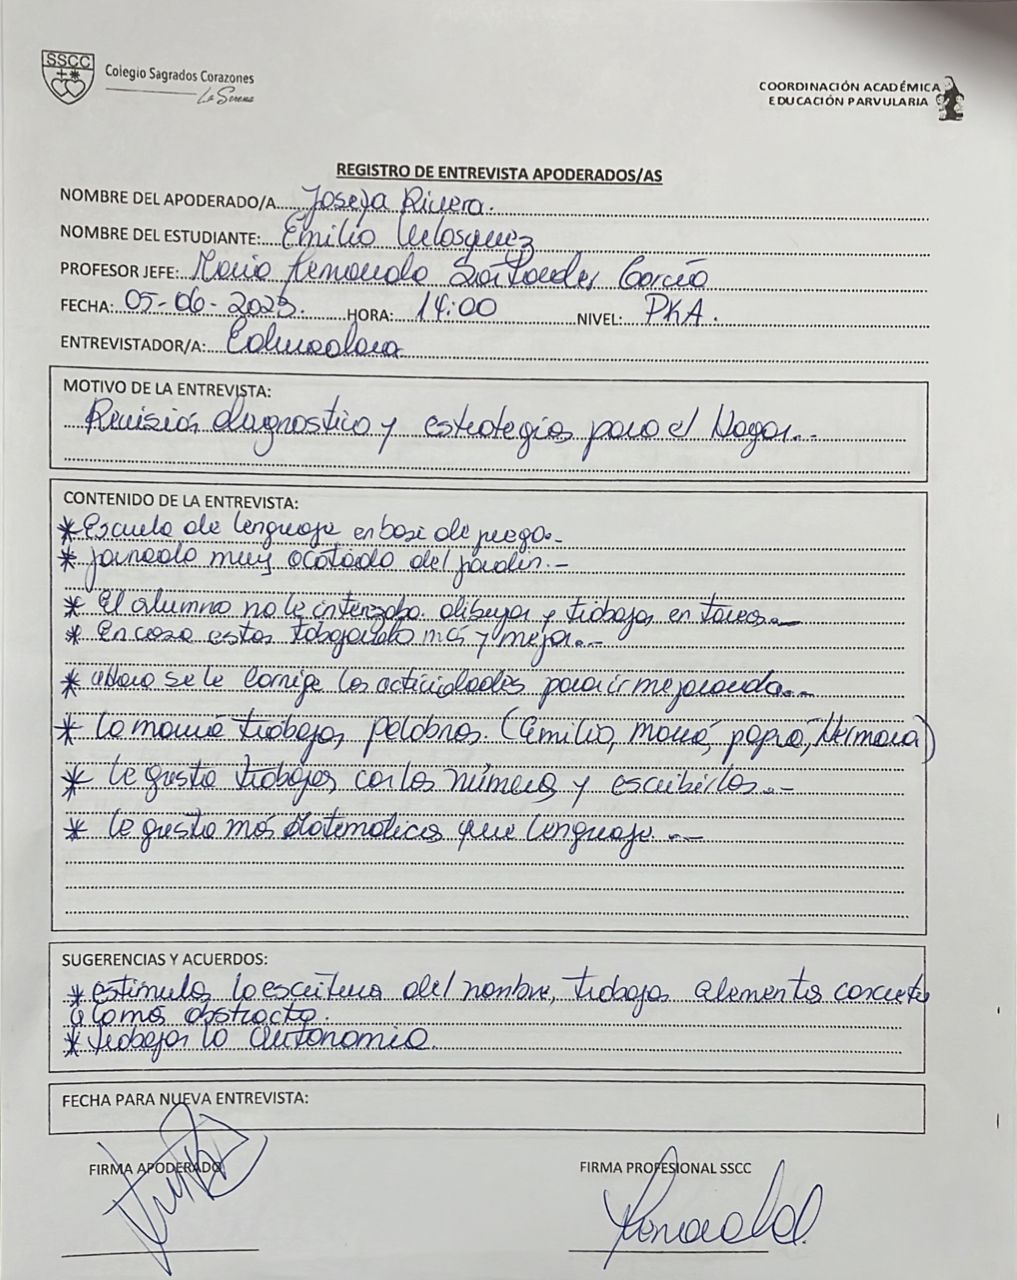 SSCC
Colegio Sagrados Corazones
La Serena
COORDINACIÓN ACADÉMICA
EDUCACIÓN PARVULARIA
REGISTRO DE ENTREVISTA APODERADOS/AS
NOMBRE DEL APODERADO/A Josefa Rivera.
NOMBRE DEL ESTUDIANTE: Emilio Velosquez
PROFESOR JEFE: Maria Fernanda Santander García
FECHA: 05-06-2023. HORA: 14:00 NIVEL: PKA.
ENTREVISTADOR/A: Educadora
MOTIVO DE LA ENTREVISTA:
Revisión diagnostico y estrategias para el Hogar.-
CONTENIDO DE LA ENTREVISTA:
* Escuela de lenguaje en base de juego.-
* jornada muy acotada del jardin.-
* El alumno no le interzaba dibujar y trabajar en tareas.-
* En casa estas más y mejor.-
* Ahora se le corrige las actividades para ir mejorando.-
* La mamá trabaja palabras. (Emilio, mamá, papá, Hermana)
* le gusta trabajar con los números y escribirlos.-
* le gusta más Matematicas que lenguaje.-
SUGERENCIAS Y ACUERDOS:
* estimular la escritura del nombre, trabajar elementos concretos
a lo más abstracto.
* trabajar la autonomia.
FECHA PARA NUEVA ENTREVISTA:
FIRMA APODERADO
FIRMA PROFESIONAL SSCC